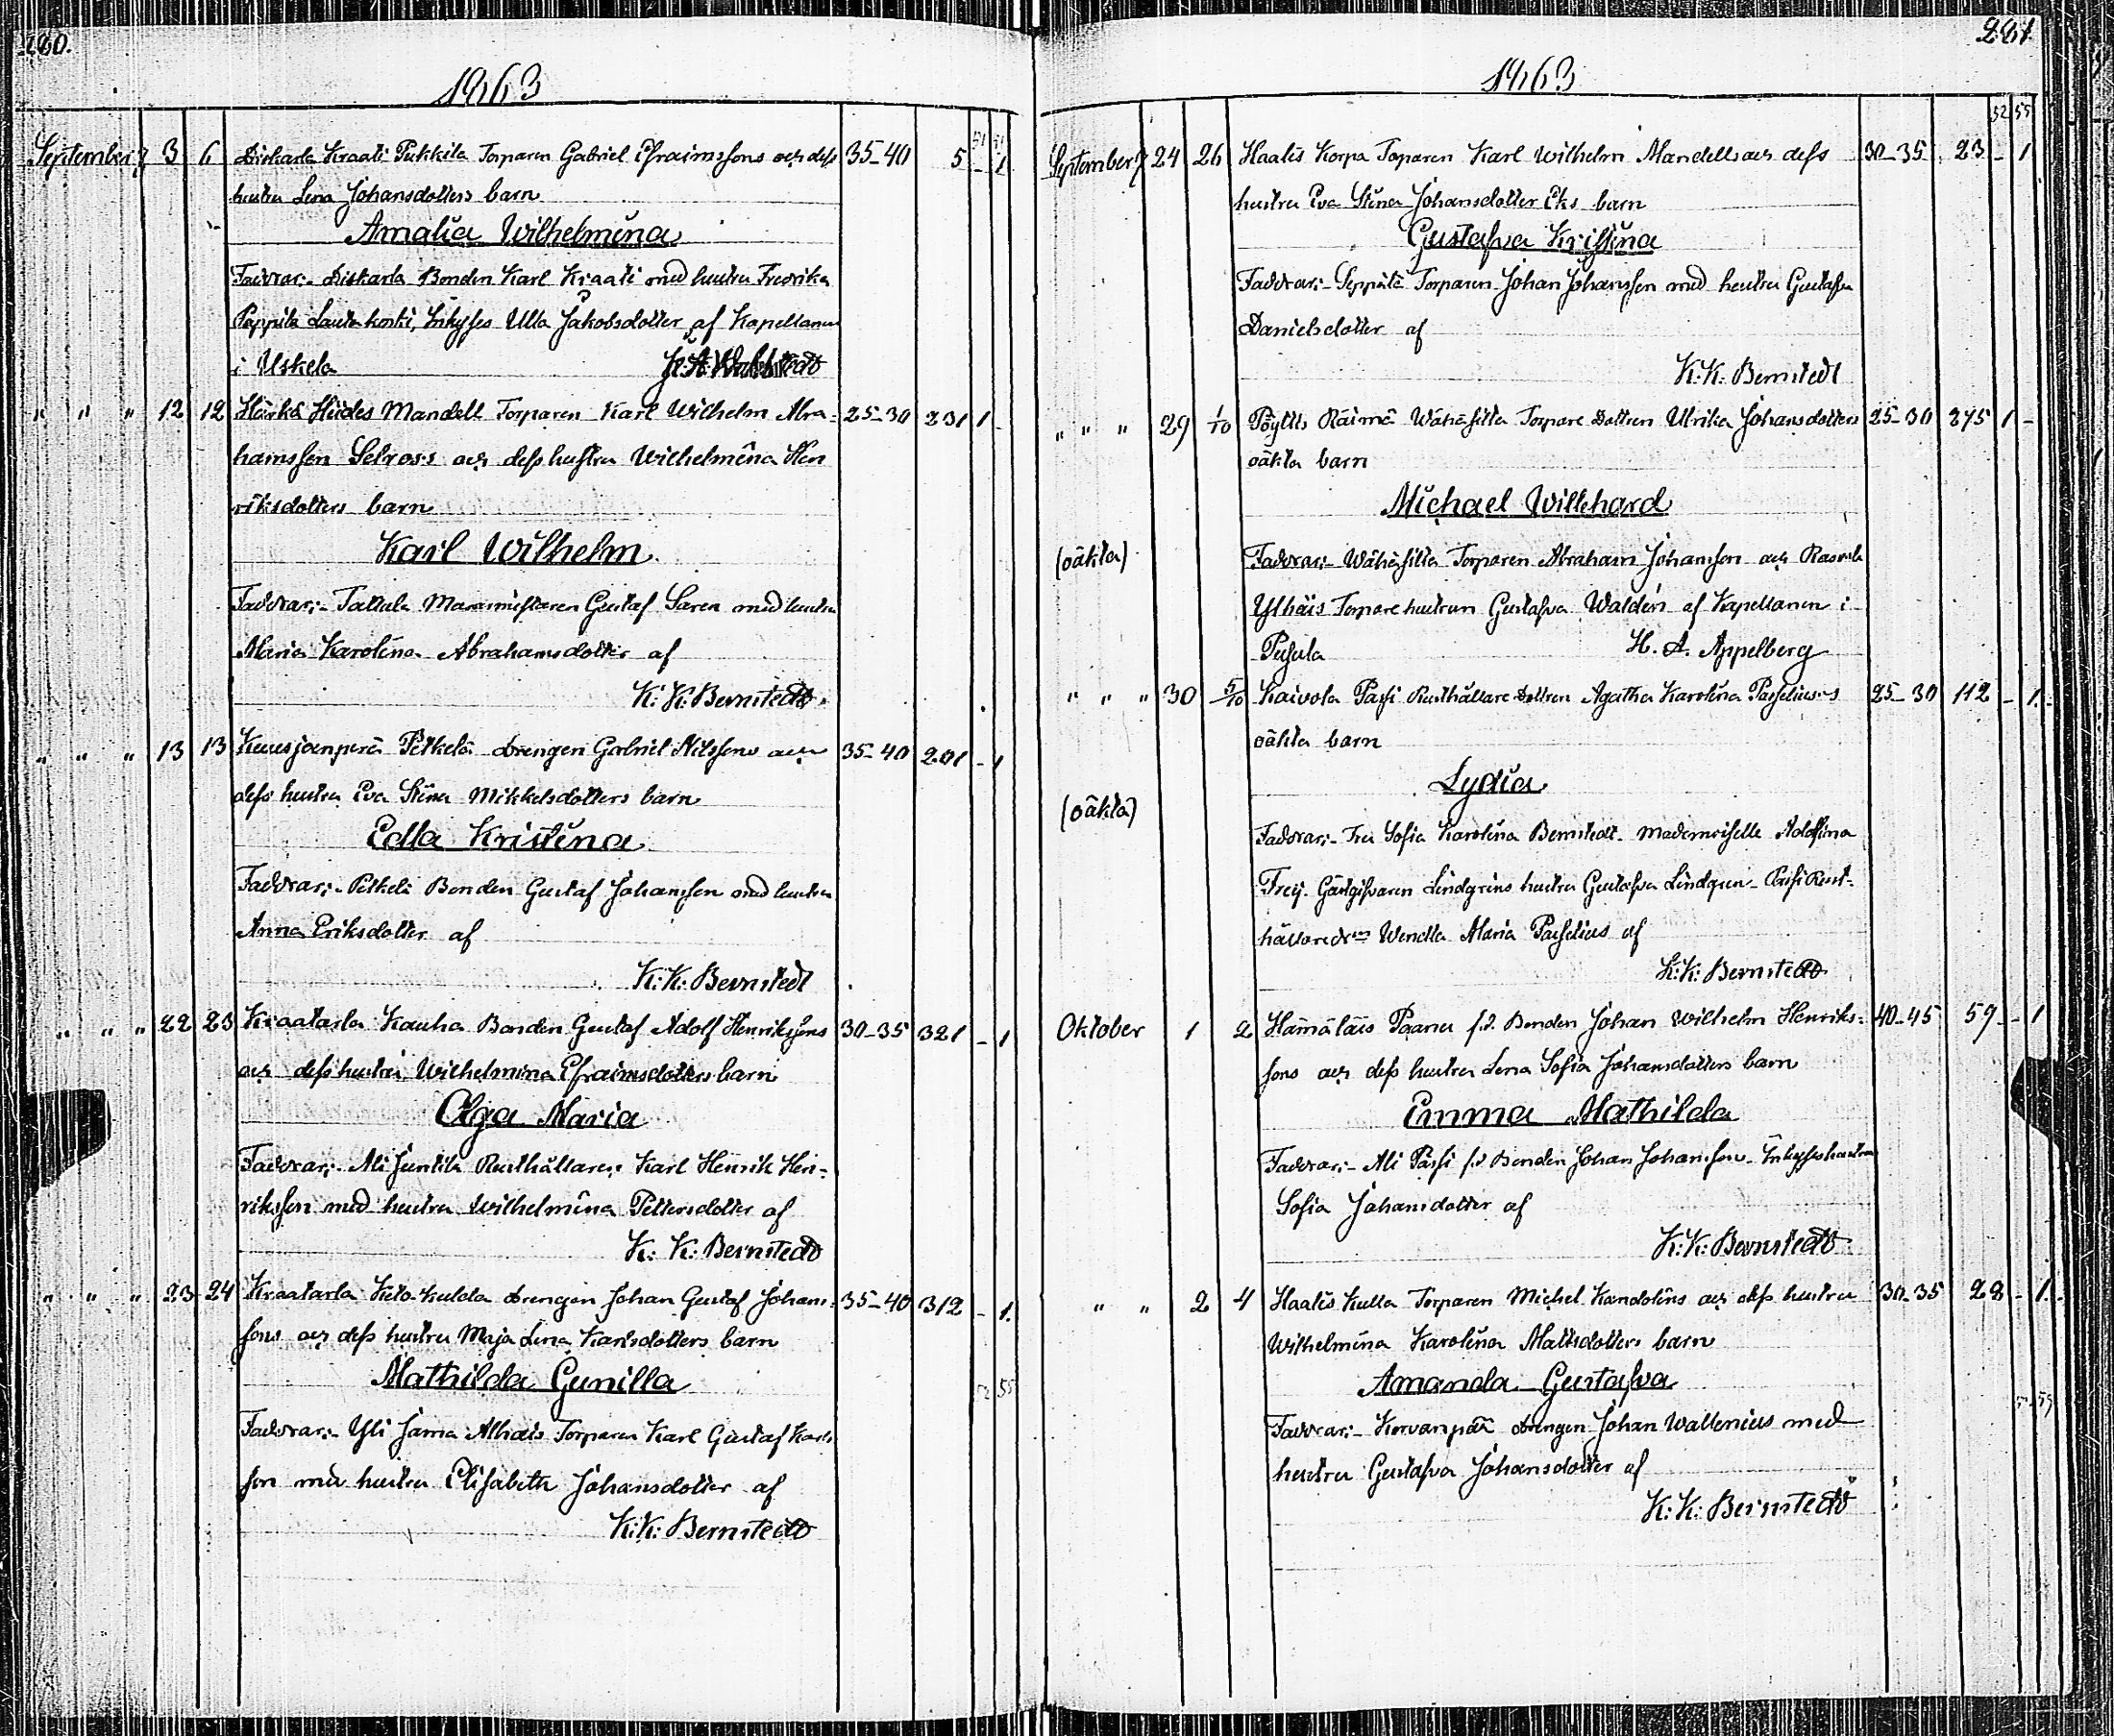 280.
1863
51 51
September 3 6 Diskarla Kraati Pukkila Torparen Gabriel Efraimssons och dess 35-40 5 - 1
hustru Lena Johansdotters barn
Amalia Wilhelmina
Faddrar:- Diskarla Bonden Karl Kraati med hustru Fredrika
Peppila Lautakoski, Inhyses Ulla Jakobsdotter af Kapellanen
i Uskela
" " " 12 12 Härkä Hiides Mandell Torparen Karl Wilhelm Abra= 25-30 231 1 -
hamsson Selross och dess hustru Wilhelmina Hen
riksdotters barn
Karl Wilhelm
Faddrar:- Tattula Murmästaren Gustaf Saren med hustru
Maria Karolina Abrahamsdotter af
K: K: Bernstedt.
" " " 13 13 Kuusjoenperä Pitkelä Drengen Gabriel Nilssons och 35-40 201 - 1
dess hustru Eva Stina Mikkelsdotters barn
Edla Kristina
Faddrar:- Pitkelä Bonden Gustaf Johansson med hustru
Anna Eriksdotter af
K: K: Bernstedt
" " " 22 23 Kraatarla Kauha Bonden Gustaf Adolf Henrikssons 30-35 321 - 1
och dess hustru Wilhelmina Efraimsdotters barn
Olga Maria
Faddrar:- Ali Juntila Rusthållaren Karl Henrik Hen-
riksson med hustru Wilhelmina Pettersdotter af
K: K: Bernstedt
" " " 23 24 Kraatarla Keto-kulda Drengen Johan Gustaf Johans= 35-40 312 - 1.
sons och dess hustru Maja Lena Karlsdotters barn
Mathilda Gunilla
52 55
Faddrar:- Yli Jama Alhais Torparen Karl Gustaf Karls
son med hustru Elisabeth Johansdotter af
K: K: Bernstedt
281.
1863
52 55
September 24 26 Haalis Korpa Torparen Karl Wilhelm Mandells och dess 30-35 23 - 1
hustru Eva Stina Johansdotter Eks barn
Gustafva Kristina
Faddrar:- Seppälä Torparen Johan Johansson med hustru Gustafva
Danielsdotter af
K: K: Bernstedt
" " " 29 1/10 Pöytis Räimä Wähäsilla Torpare Dottren Ulrika Johansdotters 25-30 275 1 -
oäkta barn
Michael Willehard
(oäkta)
Faddrar:- Wähäsilla Torparen Abraham Johansson och
Ylhäis Torpare hustrun Gustafva Waldén af Kapellanen i
Pusula H. A. Appelberg
" " " 30 5/10 Kaivola Passi Rusthållare Dottren Agatha Karolina Passelius:s 25-30 112 - 1.
oäkta barn
Lydia
(oäkta)
Faddrar:- Fru Sofia Karolina Bernstedt Mademoiselle Adolfina
Frey. Gästgifvaren Lindgrens hustru Gustafva Lindgren - Passi Rust-
hållaredrn Wendla Maria Passelius af
K: K: Bernstedt
Oktober 1 2 Hämäläis Paanu f.d. Bonden Johan Wilhelm Henriks= 40-45 59 - 1
sons och dess hustru Lena Sofia Johansdotters barn
Emma Mathilda
Faddrar:- Ali Passi f.d Bonden Johan Johansson - Inhyseshustrun
Sofia Johansdotter af
K: K: Bernstedt
" " 2 4 Haalis Kulla Torparen Michel Kandolins och dess hustru 30-35 28 - 1.
Wilhelmina Karolina Mattsdotters barn
Amanda Gustafva
Faddrar:- Korvanpää Drengen Johan Wallenius med
hustru Gustafva Johansdotter af
K: K: Bernstedt